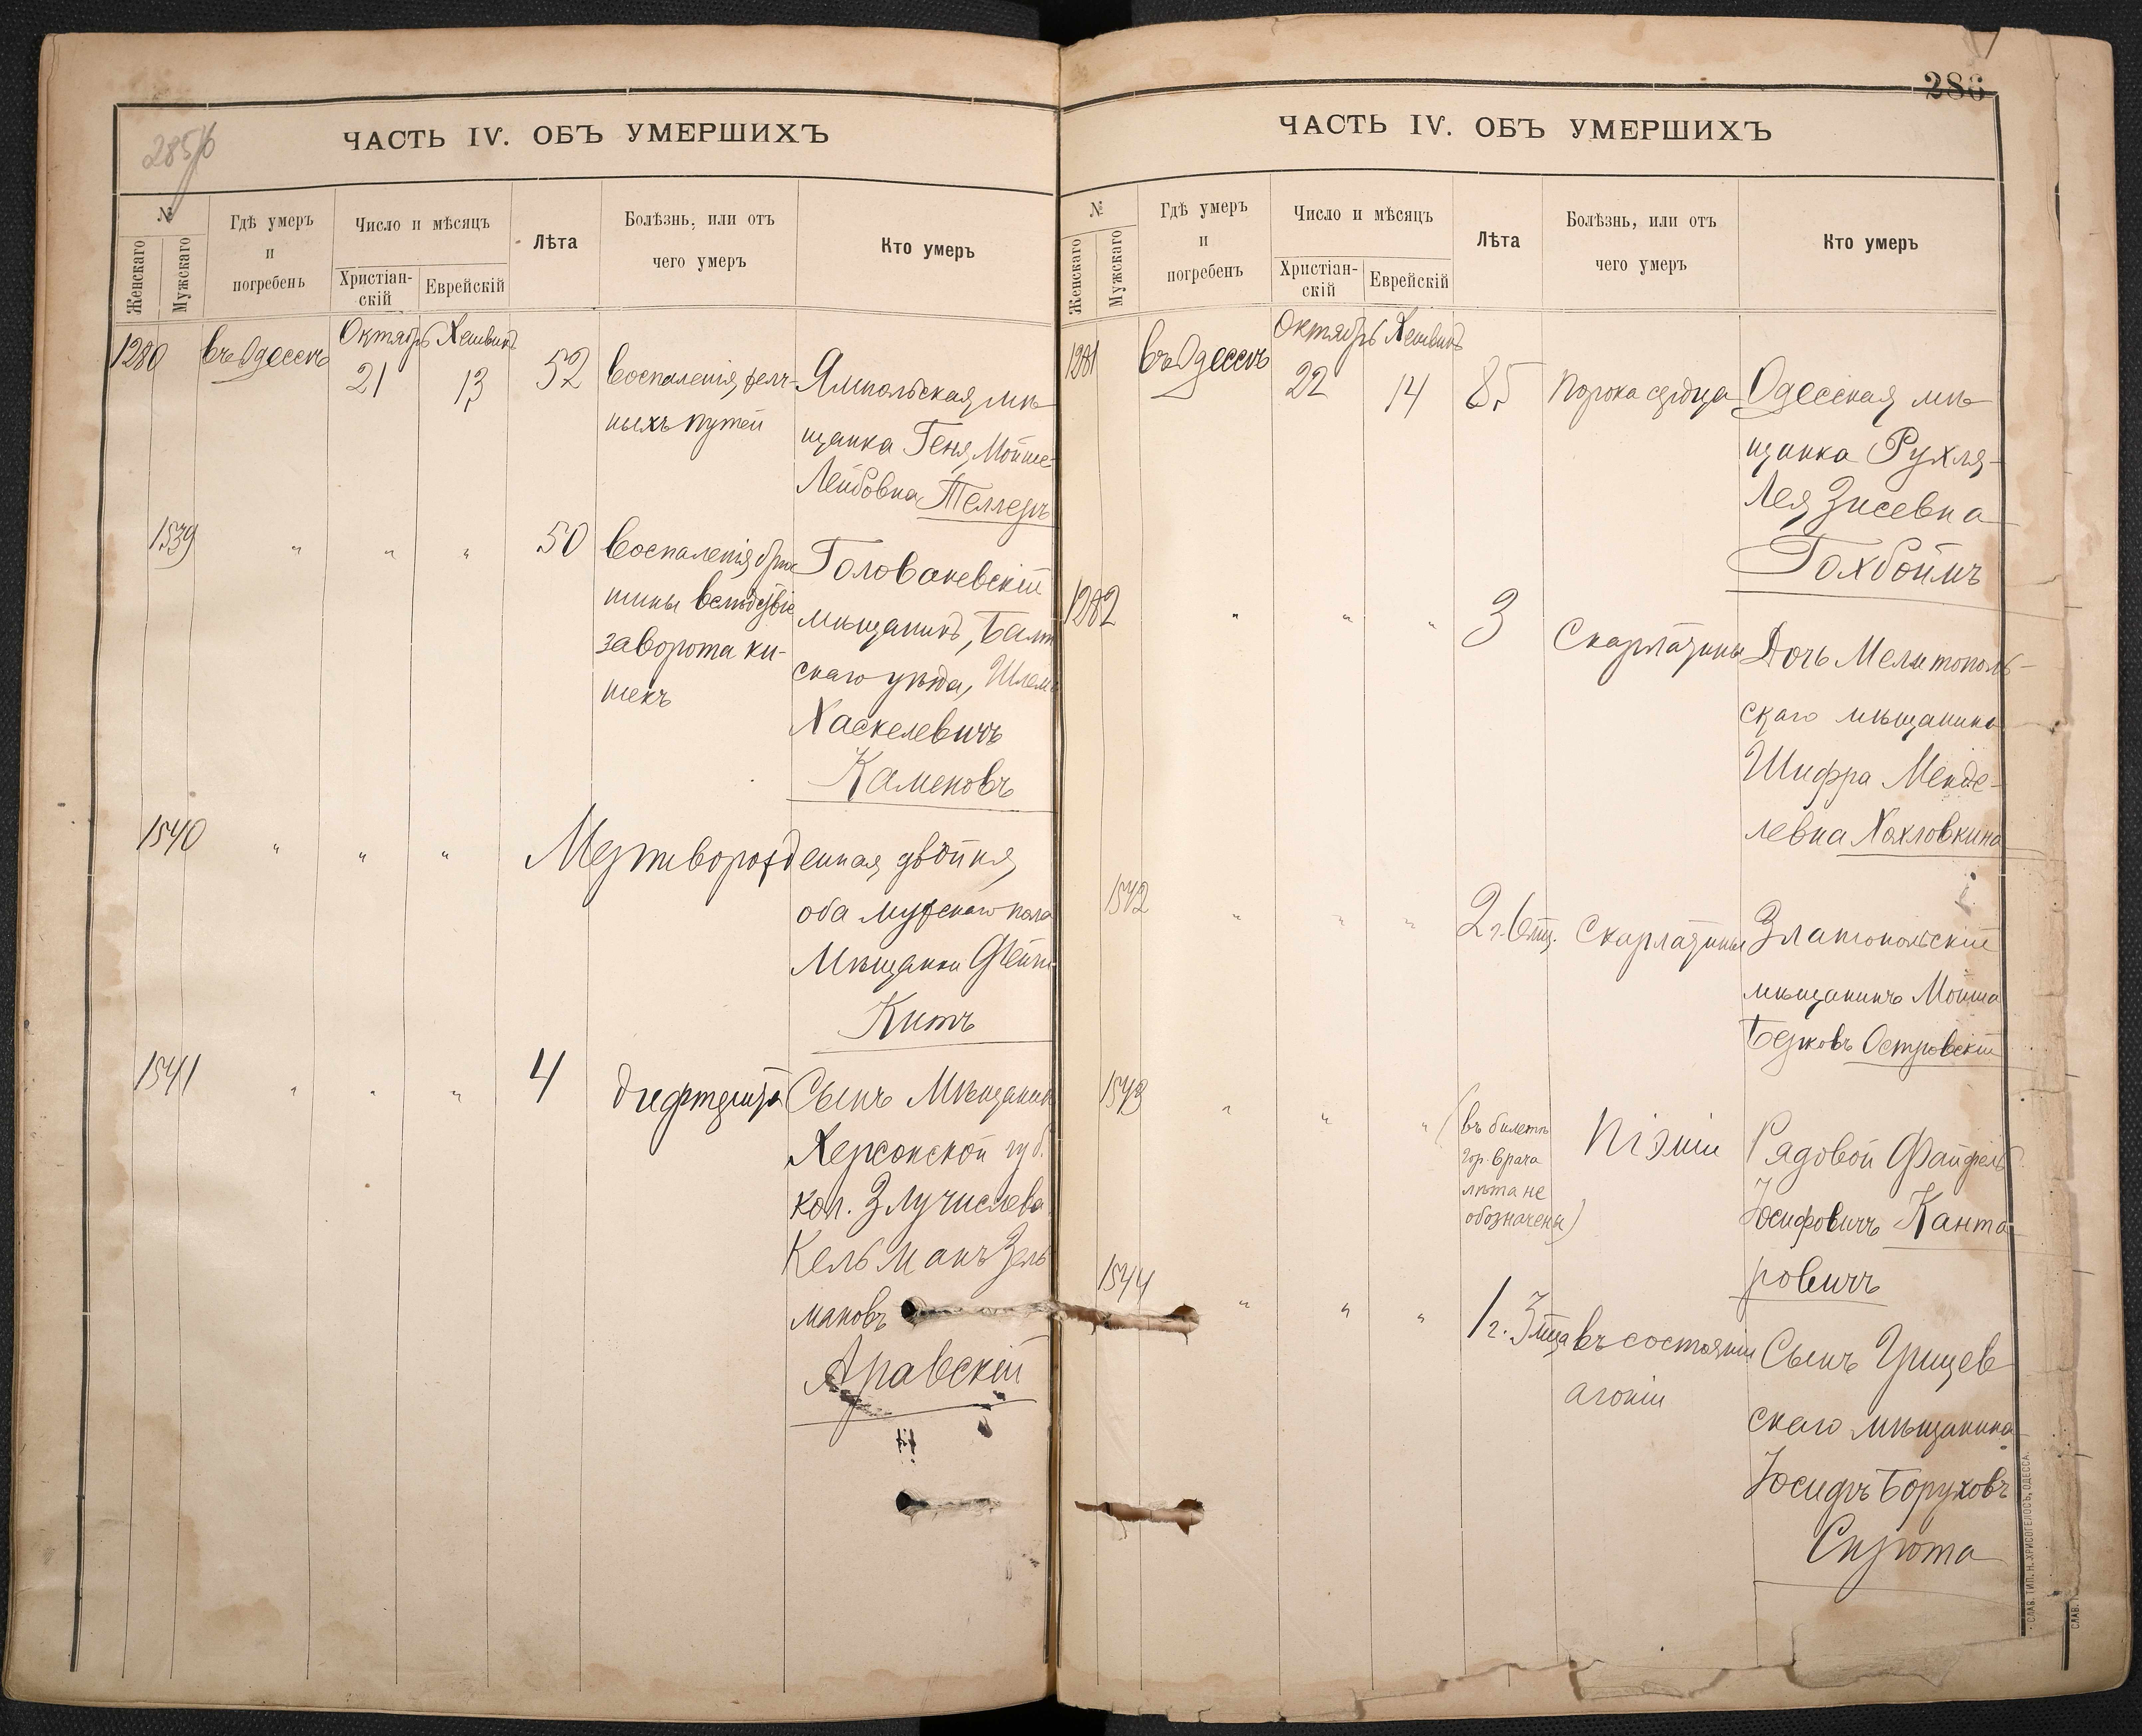 285/б
ЧАСТЬ IV. ОБЪ УМЕРШИХЪ
№
Женскаго
Мужскаго
Гдѣ умеръ
и
погребенъ
Число и мѣсяцъ
Христіан-
скій
Еврейскій
Лѣта
Болѣзнь, или отъ
чего умеръ
Кто умеръ
1280 въ Одессѣ Октябрь Хешвинъ
21 13 52 воспаленія желч-
ныхъ путей
Ямпольская мѣ-
щанка Геня Мойше-
Лейбовна Теллеръ
1539 " " " 50 воспаленія брю
шины вслѣдствіе
заворота ки-
шекъ
Голованевскій
мѣщанинъ, Балт
скаго уѣзда, Шлема
Хаскелевичъ
Каменовъ
1540 " " " Мертворожденная двойня,
оба мужскаго пола
Мѣщанки Фейги
Китъ
1541 " " " 4 дифтерита
Сынъ Мѣщанина
Херсонской губ.
кол. Злучистева
Кельманъ Зель
мановъ
Аравскій
286
ЧАСТЬ IV. ОБЪ УМЕРШИХЪ
№
Женскаго
Мужскаго
Гдѣ умеръ
и
погребенъ
Число и мѣсяцъ
Христіан-
скій
Еврейскій
Лѣта
Болѣзнь, или отъ
чего умеръ
Кто умеръ
1281 въ Одессѣ Октябрь Хешвинъ
22 14 85 порока сердца
Одесская мѣ-
щанка Рухля-
Лея Зисевна
Гохбоймъ
1282 " " " 3 Скарлатины
Дочь Мелитополь-
скаго мѣщанина
Шифра Менде-
левна Хохловкина
1542 " " " 2 г. 6 мц. Скарлатины
Златопольскій
мѣщанинъ Мойша
Берковъ Островскій
1543 " " " (въ билетѣ
гор. врача
лѣта не
обозначены)
піэміи
Рядовой Файфель
ІосифовичъКанта
ровичъ
1544 " " " 1 г. 3 мца въ состояніи
агоніи
Сынъ Грицев
скаго мѣщанина
Іосифъ Боруховъ
Сирота
СЛАВ. ТИП. Н. ХРИСОГЕЛОСЪ, ОДЕССА.